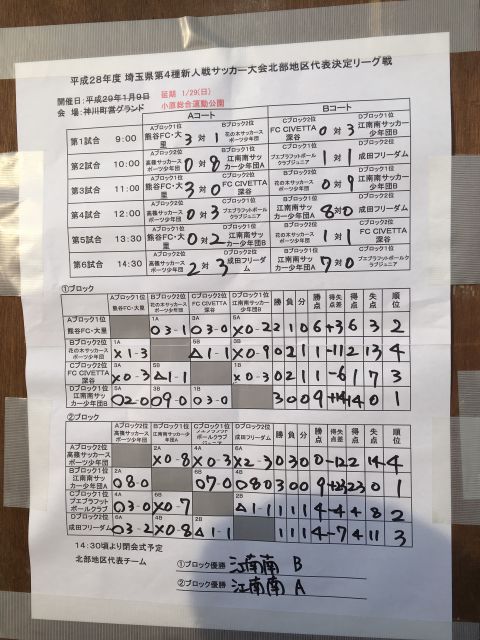 平成28年度 埼玉県第4種新人戦サッカー大会北部地区代表決定リーグ戦
開催日：平成29年1月9日 延期 1/29(日)
会 場：神川町営グランド 小原総合運動公園
Aコート Bコート
第1試合 9:00 Aブロック1位 熊谷FC・大里 3 対 1 Bブロック2位 花の木サッカースポーツ少年団 Cブロック2位 FC CIVETTA 深谷 0 対 3 Dブロック1位 江南南サッカー少年団B
第2試合 10:00 Aブロック2位 高篠サッカースポーツ少年団 0 対 8 Bブロック1位 江南南サッカー少年団A Cブロック1位 プエプラフットボールクラブジュニア 1 対 1 Dブロック2位 成田フリーダム
第3試合 11:00 Aブロック1位 熊谷FC・大里 3 対 0 Cブロック2位 FC CIVETTA 深谷 Bブロック2位 花の木サッカースポーツ少年団 0 対 9 Dブロック1位 江南南サッカー少年団B
第4試合 12:00 Aブロック2位 高篠サッカースポーツ少年団 0 対 3 Cブロック1位 プエプラフットボールクラブジュニア Bブロック1位 江南南サッカー少年団A 8 対 0 Dブロック2位 成田フリーダム
第5試合 13:30 Aブロック1位 熊谷FC・大里 0 対 2 Dブロック1位 江南南サッカー少年団B Bブロック2位 花の木サッカースポーツ少年団 1 対 1 Cブロック2位 FC CIVETTA 深谷
第6試合 14:30 Aブロック2位 高篠サッカースポーツ少年団 2 対 3 Dブロック2位 成田フリーダム Bブロック1位 江南南サッカー少年団A 7 対 0 Cブロック1位 プエプラフットボールクラブジュニア
①ブロック
Aブロック1位 熊谷FC・大里 Bブロック2位 花の木サッカースポーツ少年団 Cブロック2位 FC CIVETTA 深谷 Dブロック1位 江南南サッカー少年団B 勝 負 分 勝点 得失点差 得点 失点 順位
Aブロック1位 熊谷FC・大里 1A ○3-1 3A ○3-0 5A ×0-2 2 1 0 6 +3 6 3 2
Bブロック2位 花の木サッカースポーツ少年団 1A ×1-3 5B △1-1 3B ×0-9 0 2 1 1 -11 2 13 4
Cブロック2位 FC CIVETTA 深谷 3A ×0-3 5B △1-1 1B ×0-3 0 2 1 1 -6 1 7 3
Dブロック1位 江南南サッカー少年団B 5A ○2-0 3B ○9-0 1B ○3-0 3 0 0 9 +14 14 0 1
②ブロック
Aブロック2位 高篠サッカースポーツ少年団 Bブロック1位 江南南サッカー少年団A Cブロック1位 プエプラフットボールクラブジュニア Dブロック2位 成田フリーダム 勝 負 分 勝点 得失点差 得点 失点 順位
Aブロック2位 高篠サッカースポーツ少年団 2A ×0-8 4A ×0-3 6A ×2-3 0 3 0 0 -12 2 14 4
Bブロック1位 江南南サッカー少年団A 2A ○8-0 6B ○7-0 4B ○8-0 3 0 0 9 +23 23 0 1
Cブロック1位 プエプラフットボールクラブ 4A ○3-0 6B ×0-7 2B △1-1 1 1 1 4 -4 4 8 2
Dブロック2位 成田フリーダム 6A ○3-2 4B ×0-8 2B △1-1 1 1 1 4 -7 4 11 3
14:30頃より閉会式予定
北部地区代表チーム ①ブロック優勝 江南南 B
②ブロック優勝 江南南 A